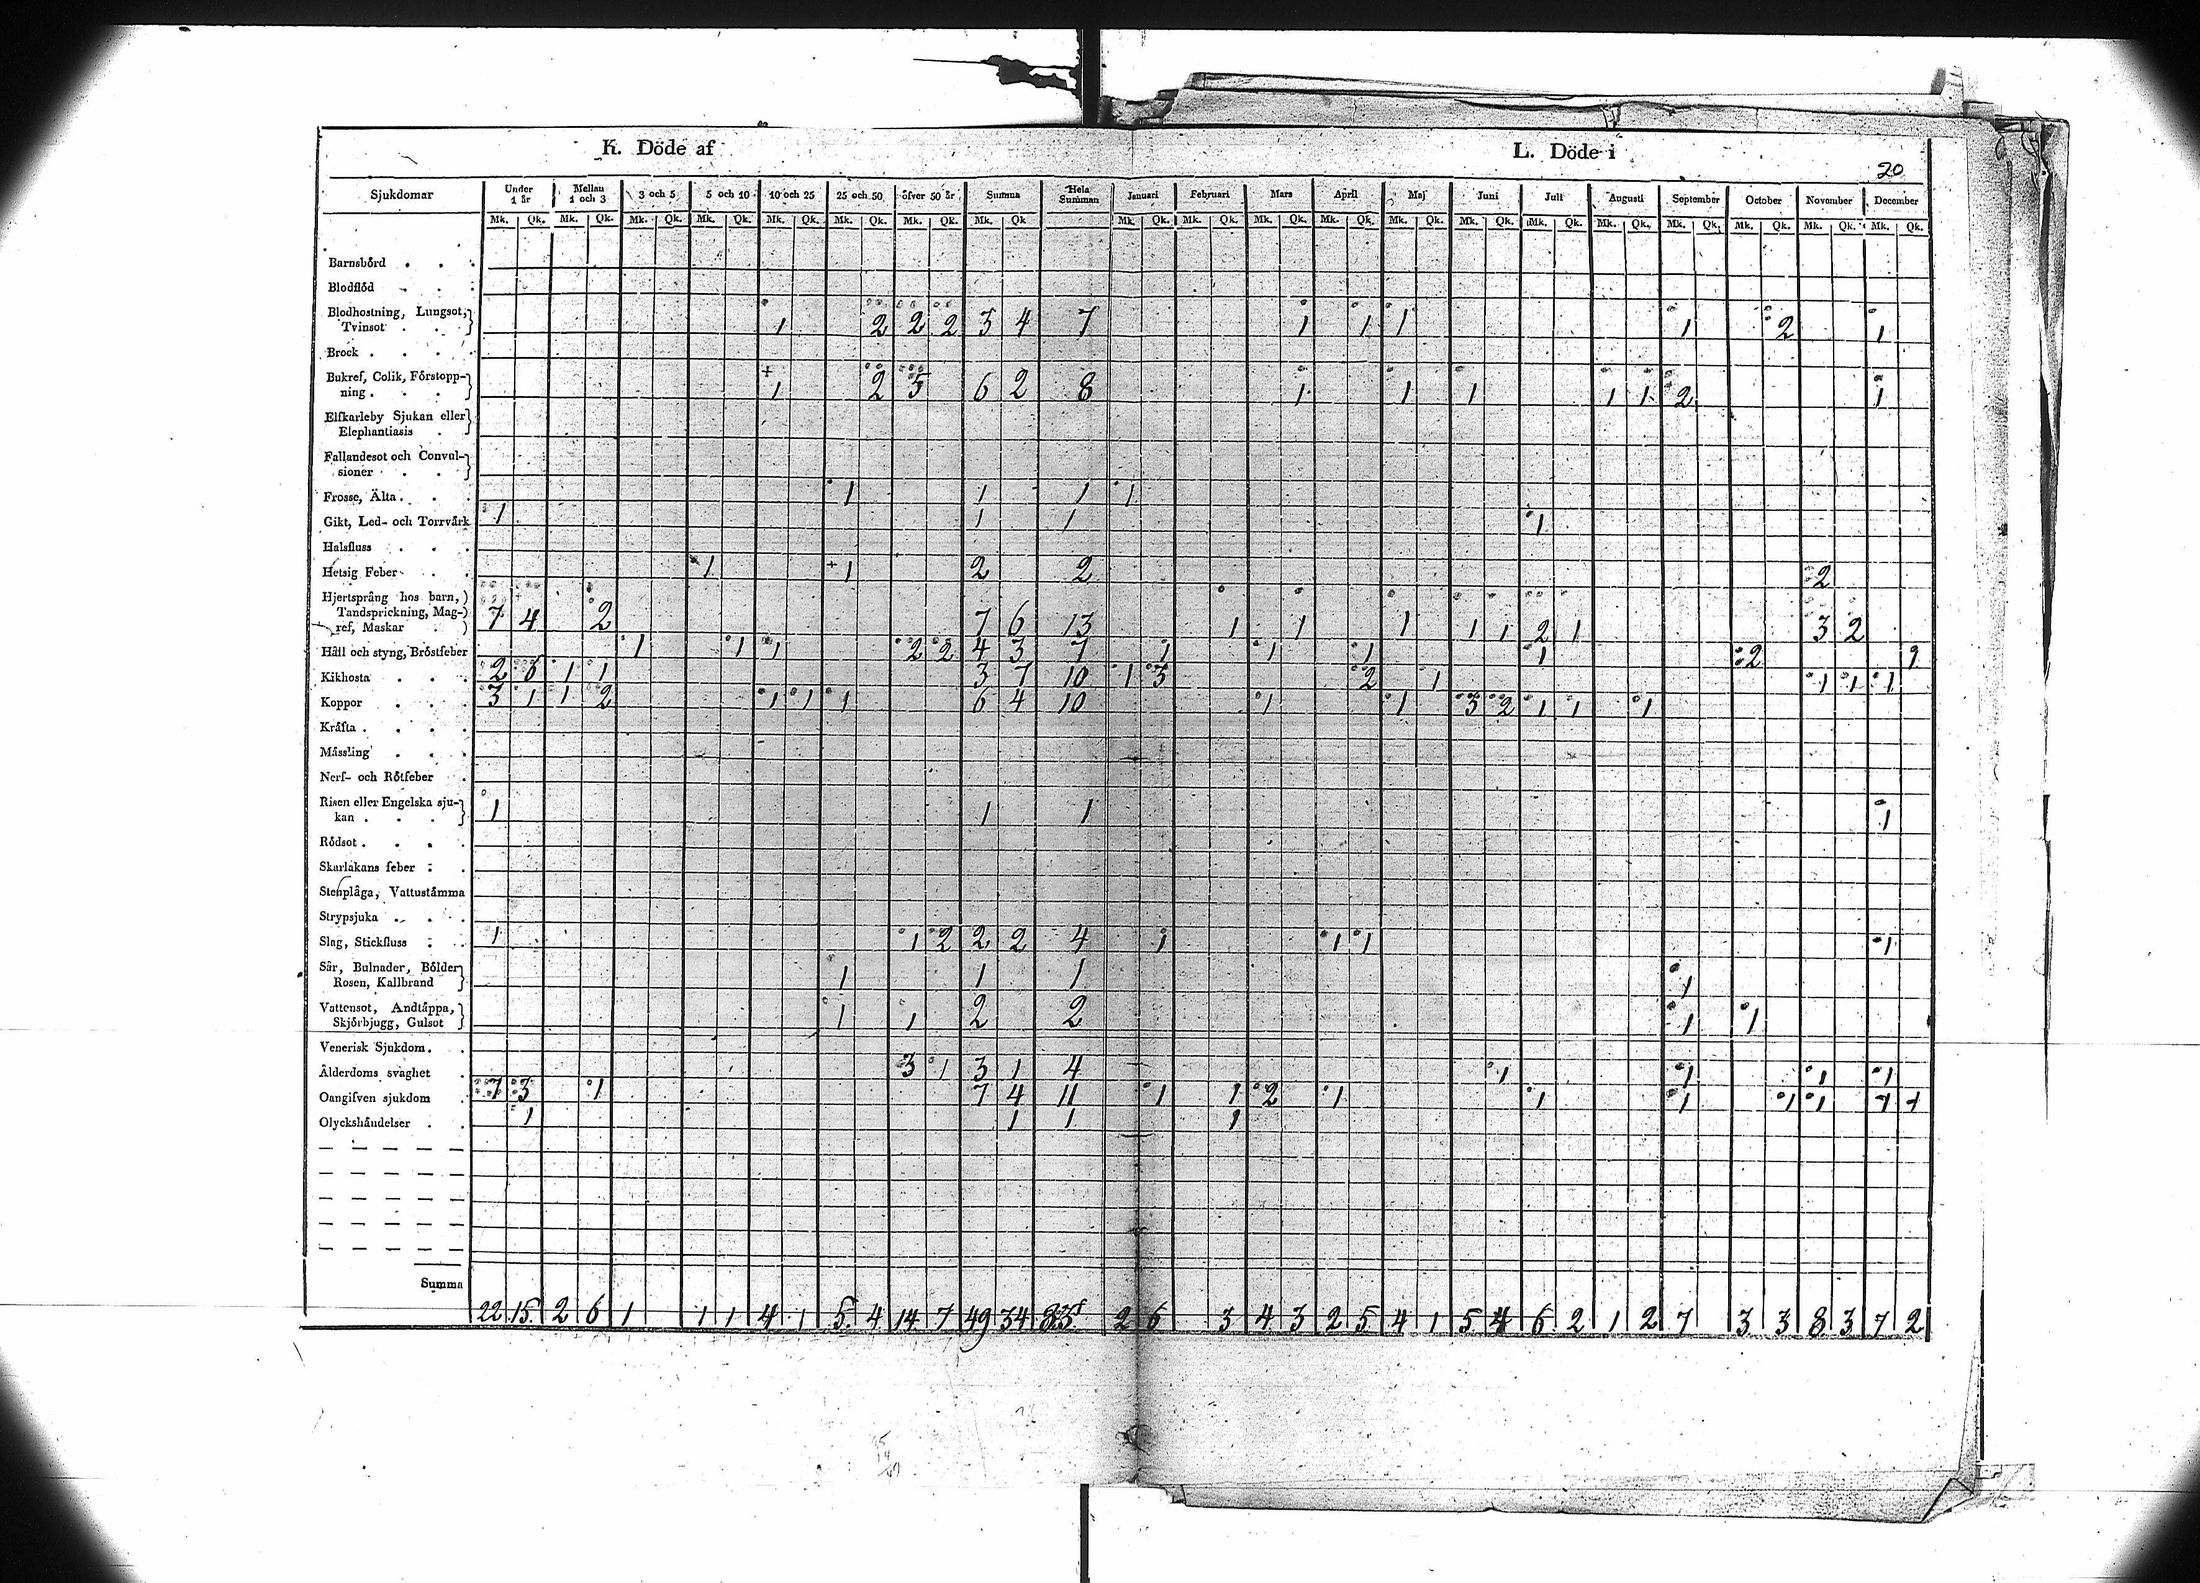 K. Döde af
L. Döde i
20
Sjukdomar Under 1 år Mellan 1 och 3 3 och 5 5 och 10 10 och 25 25 och 50 öfver 50 år Summa Hela Summan Januari Februari Mars April Maj Juni Juli Augusti September October November December
Mk. Qk. Mk. Qk. Mk. Qk. Mk. Qk. Mk. Qk. Mk. Qk. Mk. Qk. Mk. Qk Mk. Qk. Mk. Qk. Mk. Qk. Mk. Qk. Mk. Qk. Mk. Qk. Mk. Qk. Mk. Qk. Mk. Qk. Mk. Qk. Mk. Qk. Mk. Qk.
Barnsbörd
Blodflöd
Blodhostning, Lungsot,
Tvinsot 1 2 2 2 3 4 7 1 1 1 1 2 1
Brock
Bukref, Colik, Förstopp-
ning 1 2 5 6 2 8 1 1 1 1 1 2 1
Elfkarleby Sjukan eller
Elephantiasis
Fallandesot och Convul-
sioner
Frosse, Älta 1 1 1 1
Gikt, Led- och Torrvärk 1 1 1 1
Halsfluss
Hetsig Feber 1 1 2 2 2
Hjertsprång hos barn,
Tandsprickning, Mag-
ref, Maskar 7 4 2 7 6 13 1 1 1 1 1 2 1 3 2
Håll och styng, Bröstfeber 1 1 1 2 2 4 3 7 1 1 1 1 2 1
Kikhosta 2 6 1 1 3 7 10 1 3 2 1 1 1 1
Koppor 3 1 1 2 1 1 1 6 4 10 1 1 3 2 1 1 1
Kräfta
Mässling
Nerf- och Rötfeber
Risen eller Engelska sju-
kan 1 1 1 1
Rödsot
Skarlakans feber
Stenplåga, Vattustämma
Strypsjuka
Slag, Stickfluss 1 1 2 2 2 4 1 1 1 1
Sår, Bulnader, Bölder
Rosen, Kallbrand 1 1 1 1
Vattensot, Andtäppa,
Skjörbjugg, Gulsot 1 1 2 2 1 1
Venerisk Sjukdom
Ålderdoms svaghet 3 1 3 1 4 1 1 1 1
Oangifven sjukdom 7 3 1 7 4 11 1 1 2 1 1 1 1 1 1 1
Olyckshändelser 1 1 1 1
Summa
22 15 2 6 1 1 1 4 1 5 4 14 7 49 34 83 2 6 3 4 3 2 5 4 1 5 4 6 2 1 2 7 3 3 8 3 7 2